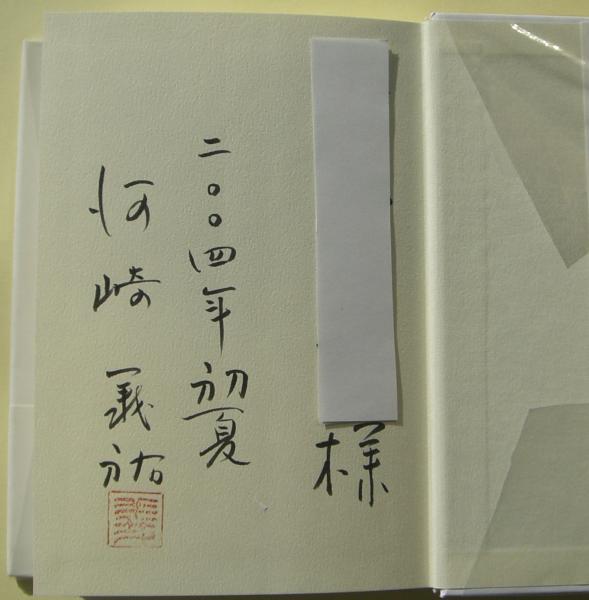 様
二〇〇四年初夏
河崎義祐